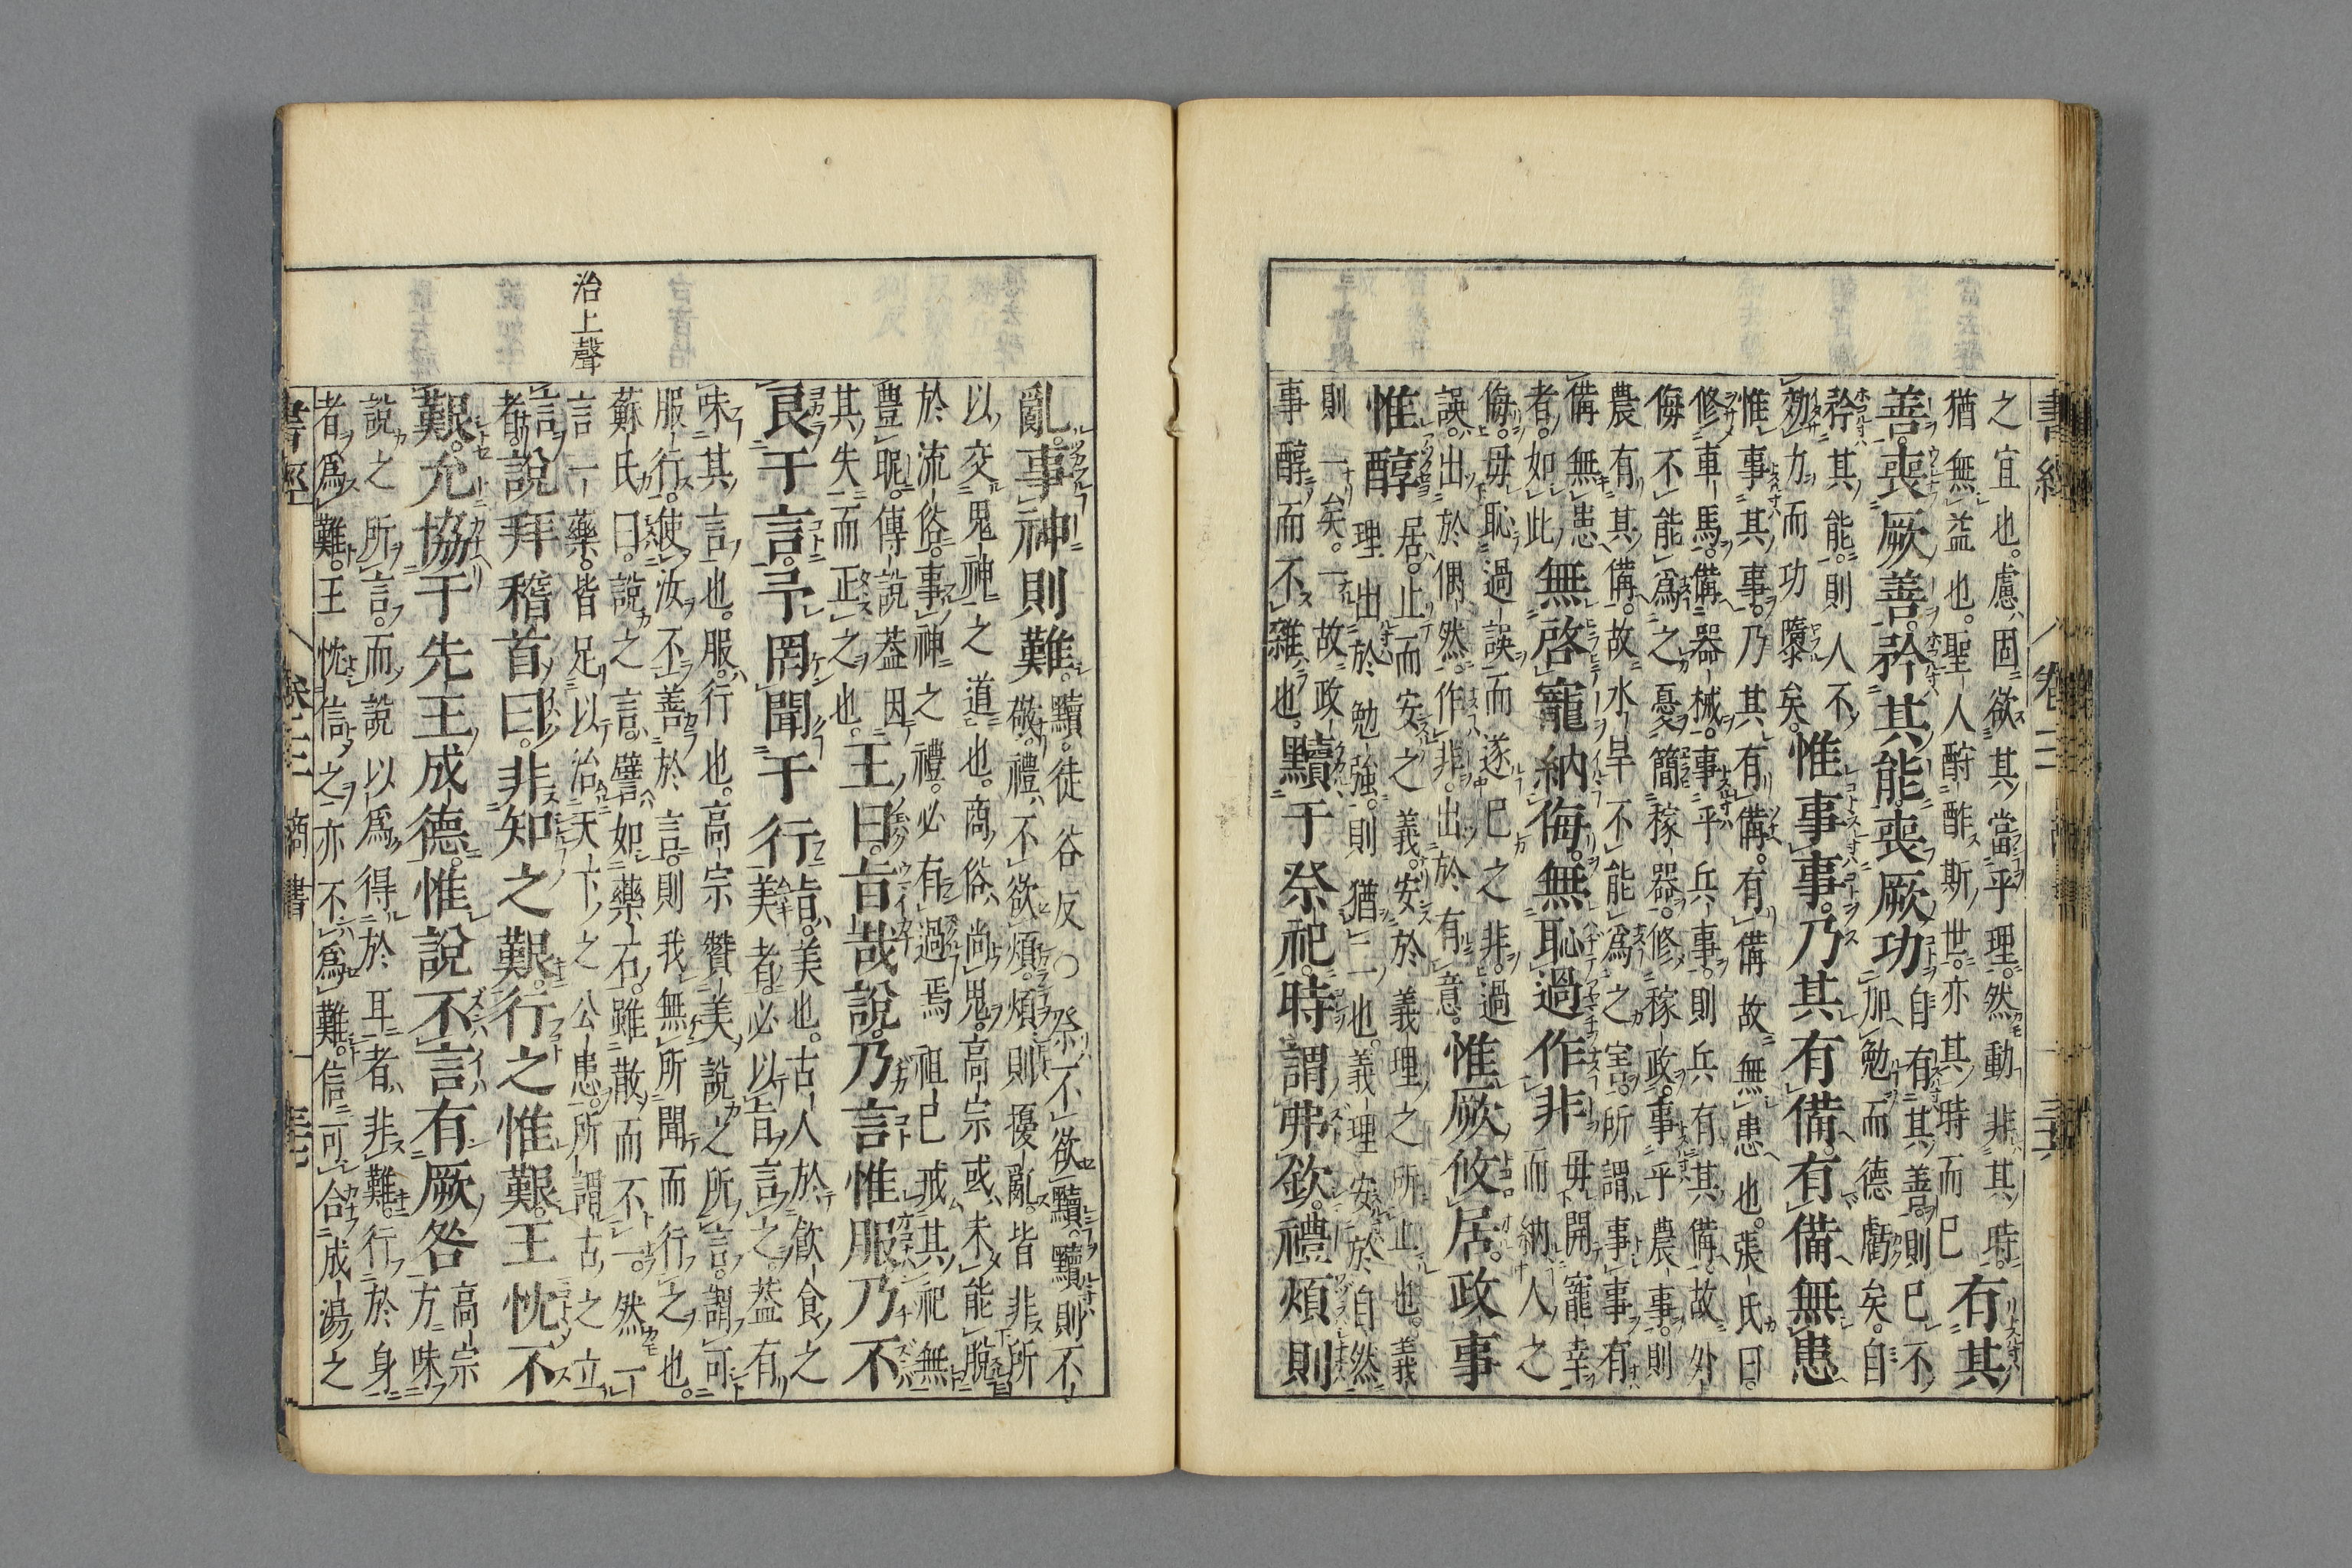 書經 卷三 商書 三十六
之宜也。慮固欲其當乎理。然動非其時。
猶無益也。聖人酬酢斯世。亦其時而已 有其
善。喪厥善。矜其能。喪厥功 自有其善。則已不
加勉而德虧矣。自
矜其能。則人不
効力而功隳矣。 惟事事。乃其有備。有備無患
惟事其事。乃其有備。有備故無患也。張氏曰。
修車馬。備器械。事乎兵事。則兵有其備。故外
侮不能爲之憂。簡稼器。修稼政。事乎農事。則
農有其備。故水旱不能爲之害。所謂事事有
備無患
者。如此 無啓寵納侮。無恥過作非 毋開寵幸
而納人之
侮。毋恥過誤而遂已之非。過
誤出於偶然。作非出於有意。 惟厥攸居。政事
惟醇 居。止而安之義。安於義理之所止也。義
理出於勉強。則猶二也。義理安於自然
則一矣。一故政
事醇而不雜也。 黷于祭祀。時謂弗欽。禮煩則
治上聲
亂。事神則難。 黷。徒谷反○祭不欲黷。黷則不
敬。禮不欲煩。煩則擾亂。皆非所
以交鬼神之道也。商俗尚鬼。高宗或未能脫
於流俗。事神之禮。必有過焉。祖己戒其祀無
豊昵。傳說蓋因
其失而正之也。 王曰。旨哉說。乃言惟服。乃不
良于言。予罔聞于行 旨。美也。古人於飲食之
美者。必以旨言之。蓋有
味其言也。服。行也。高宗贊美說之所言。謂可
服行。使汝不善於言。則我無所聞而行之也。
蘇氏曰。說之言。譬如藥石。雖散而不一。然一
言一藥。皆足以治天下之公患。所謂古之立
言
者。 說拜稽首曰。非知之艱。行之惟艱。王忱不
艱。允協于先王成德。惟說不言有厥咎 高宗
方味
說之所言。而說以爲得於耳者。非難。行於身
者爲難。王忱信之。亦不爲難。信可合成湯之
書經 卷三 商書 三十七